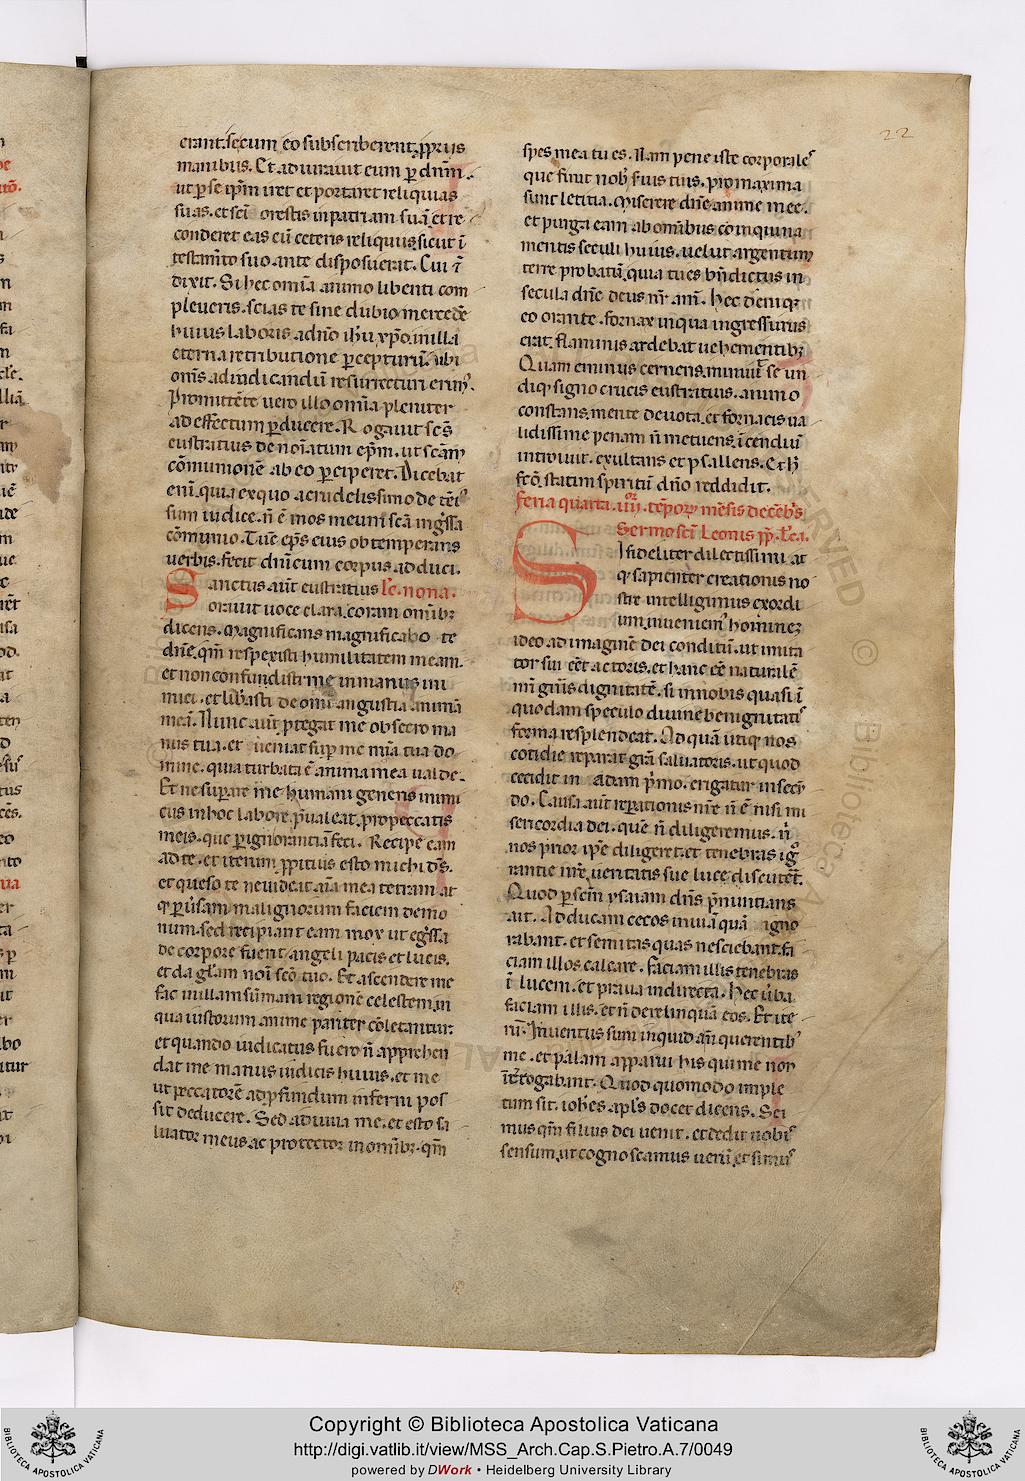 22
erant. secum eo subscriberent, ꝓpriis
manibus. Et adiurauit eum ꝑ dn̄m.
ut ꝑ se ip̄m iret et portaret reliquias
suas. et sc̄i orestis in patriam suā, et re
conderet eas cū ceteris reliquiis, sicut ī
testam̄to suo ante disposuerat. Cui
dixit. Si hec om̄ia animo libenti com
pleueris. scias te sine dubio mercedē
huius laboris a dn̄o ih̄u xp̄o, in illa
eterna retributione ꝑcepturū. ubi
om̄s ad iudicandū resurrecturi erim᷒.
Promittēte uero illo om̄ia pleniter
ad effectum ꝑducere. Rogauit sc̄s
eustratius de noīatum ep̄m. ut sc̄am
cōmunionē ab eo ꝑciperet. Dicebat
enī. quia ex quo a crudelissimo de
sum iudice. n̄ ē mos meum sc̄a ingr̄ssa
cōmunio. Tūc ep̄s eius obtemperans
uerbis. fecit dn̄icum corpus adduci.
Sanctus aūt eustratius Le. nona.
orauit uoce clara. coram om̄ibꝫ
dicens. Magnificans magnificabo te
dn̄e. qm̄ respexisti humilitatem meam.
et non confundisti me in manus ini
mici. et lib̄asti de om̄i angustia animā
meā. Nunc aūt ꝓtegat me obsecro ma
nus tua. et ueniat suꝑ me mīa tua do
mine. quia turbata ē anima mea ualde.
Et ne suꝑare me humani generis inimi
cus in hoc labore. p̄ualeat. propeccatis
meis. que ꝑ ignorantiā feci. Recipe eam
ad te. et iterum ꝓpitius esto michi dn̄s.
et queso te ne uideat aīa mea tetram at
qꝫ ꝑuersam malignorum faciem demo
num. sed recipiant eam mox ut egr̄ssa
de corpore fuerit angeli pacis et lucis.
et da gl̄am noī sc̄o tuo. Et ascendere me
fac in illam sūmam regionē celestem, in
qua iustorum anime pariter cōletantur.
et quando iudicatus fuero n̄ apprehen
dat me manus iudicis huius. et me
ut peccatorē ad ꝓfundum inferni pos
sit deducere. Sed adiuua me. et esto sa
luator meus, ac protector in om̄ibꝫ. qm̄
spes mea tu es. Nam pene iste corporales
que fiunt nob̄ seruis tuis. pro maxima
sunt letitia. Miserere dn̄e anime mee.
et purga eam ab om̄ibus coinquina
mentis seculi huius. uelut argentum
terre probatū. quia tu es bn̄dictus in
secula dn̄e deus nr̄. am̄. Hec deniqꝫ
eo orante. fornax in qua ingressurus
erat. flaminis ardebat uehementibꝫ
Quam eminus cernens. muniuit se un
diqꝫ signo crucis eustratius. animo
constans. mente deuota. et fornacis ua
lidissime penam n̄ metuens. īcendiū
introiuit. exultans et psallens. Et h̄
fc̄o. statim spiritū dn̄o reddidit.
feria quarta. iiii. tēporꝫ mēsis decēbs
Sermo sc̄i Leonis pp̄. Lc̄a.
Si fideliter dilectissimi at
qꝫ sapienter creationis no
stre intelligimus exordi
um. inueniem᷒ hominem
ideo ad imaginē dei conditū. ut imita
tor sui eēt actoris. et hanc eē naturalē
nr̄i gn̄is dignitatē. si in nobis quasi ī
quodam speculo diuine benignitatis
forma resplendeat. Ad quā utiqꝫ nos
cotidie reparat gr̄a saluatoris. ut quod
cecidit in adam p̄mo. erigatur in secūn
do. Causa aūt reꝑationis nr̄e n̄ ē nisi mi
sericordia dei. quē n̄ diligeremus. n̄
nos prior ip̄e diligeret. et tenebras ig
rantie nr̄e. ueritatis sue luce discuteret.
Quod ꝑ sc̄m ysaiam dn̄s p̄nuntians
ait. Adducam cecos in uiā quā igno
rabant. et semitas quas nesciebant. fa
ciam illos calcare. Faciam illis tenebras
ī lucem. et praua in directa. Hec u̅ba
faciam illis. et n̄ derelinquā eos. Et ite
rū. Inuentus sum inquid a n̄ querentib᷒
me. et palam apparui his qui me non
īterrogabant. Quod quomodo imple
tum sit. ioh̄es apl̄s docet dicens. Sci
mus qm̄ filius dei uenit. et dedit nobis
sensum, ut cognoscamus uerū, et simus
Copyright © Biblioteca Apostolica Vaticana
http://digi.vatlib.it/view/MSS_Arch.Cap.S.Pietro.A.7/0049
powered by DWork • Heidelberg University Library
BIBLIOTECA APOSTOLICA VATICANA
BIBLIOTECA APOSTOLICA VATICANA